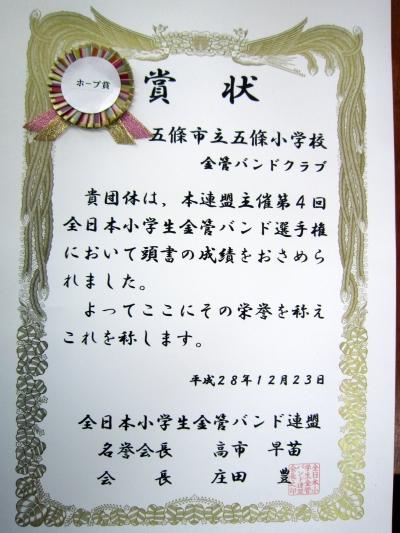 ホープ賞
賞状
五條市立五條小学校
金管バンドクラブ
貴団体は、本連盟主催第4回
全日本小学生金管バンド選手権
において頭書の成績をおさめら
れました。
よってここにその栄誉を称え
これを称します。
平成28年12月23日
全日本小学生金管バンド連盟
名誉会長 高市 早苗
会長 庄田 豊